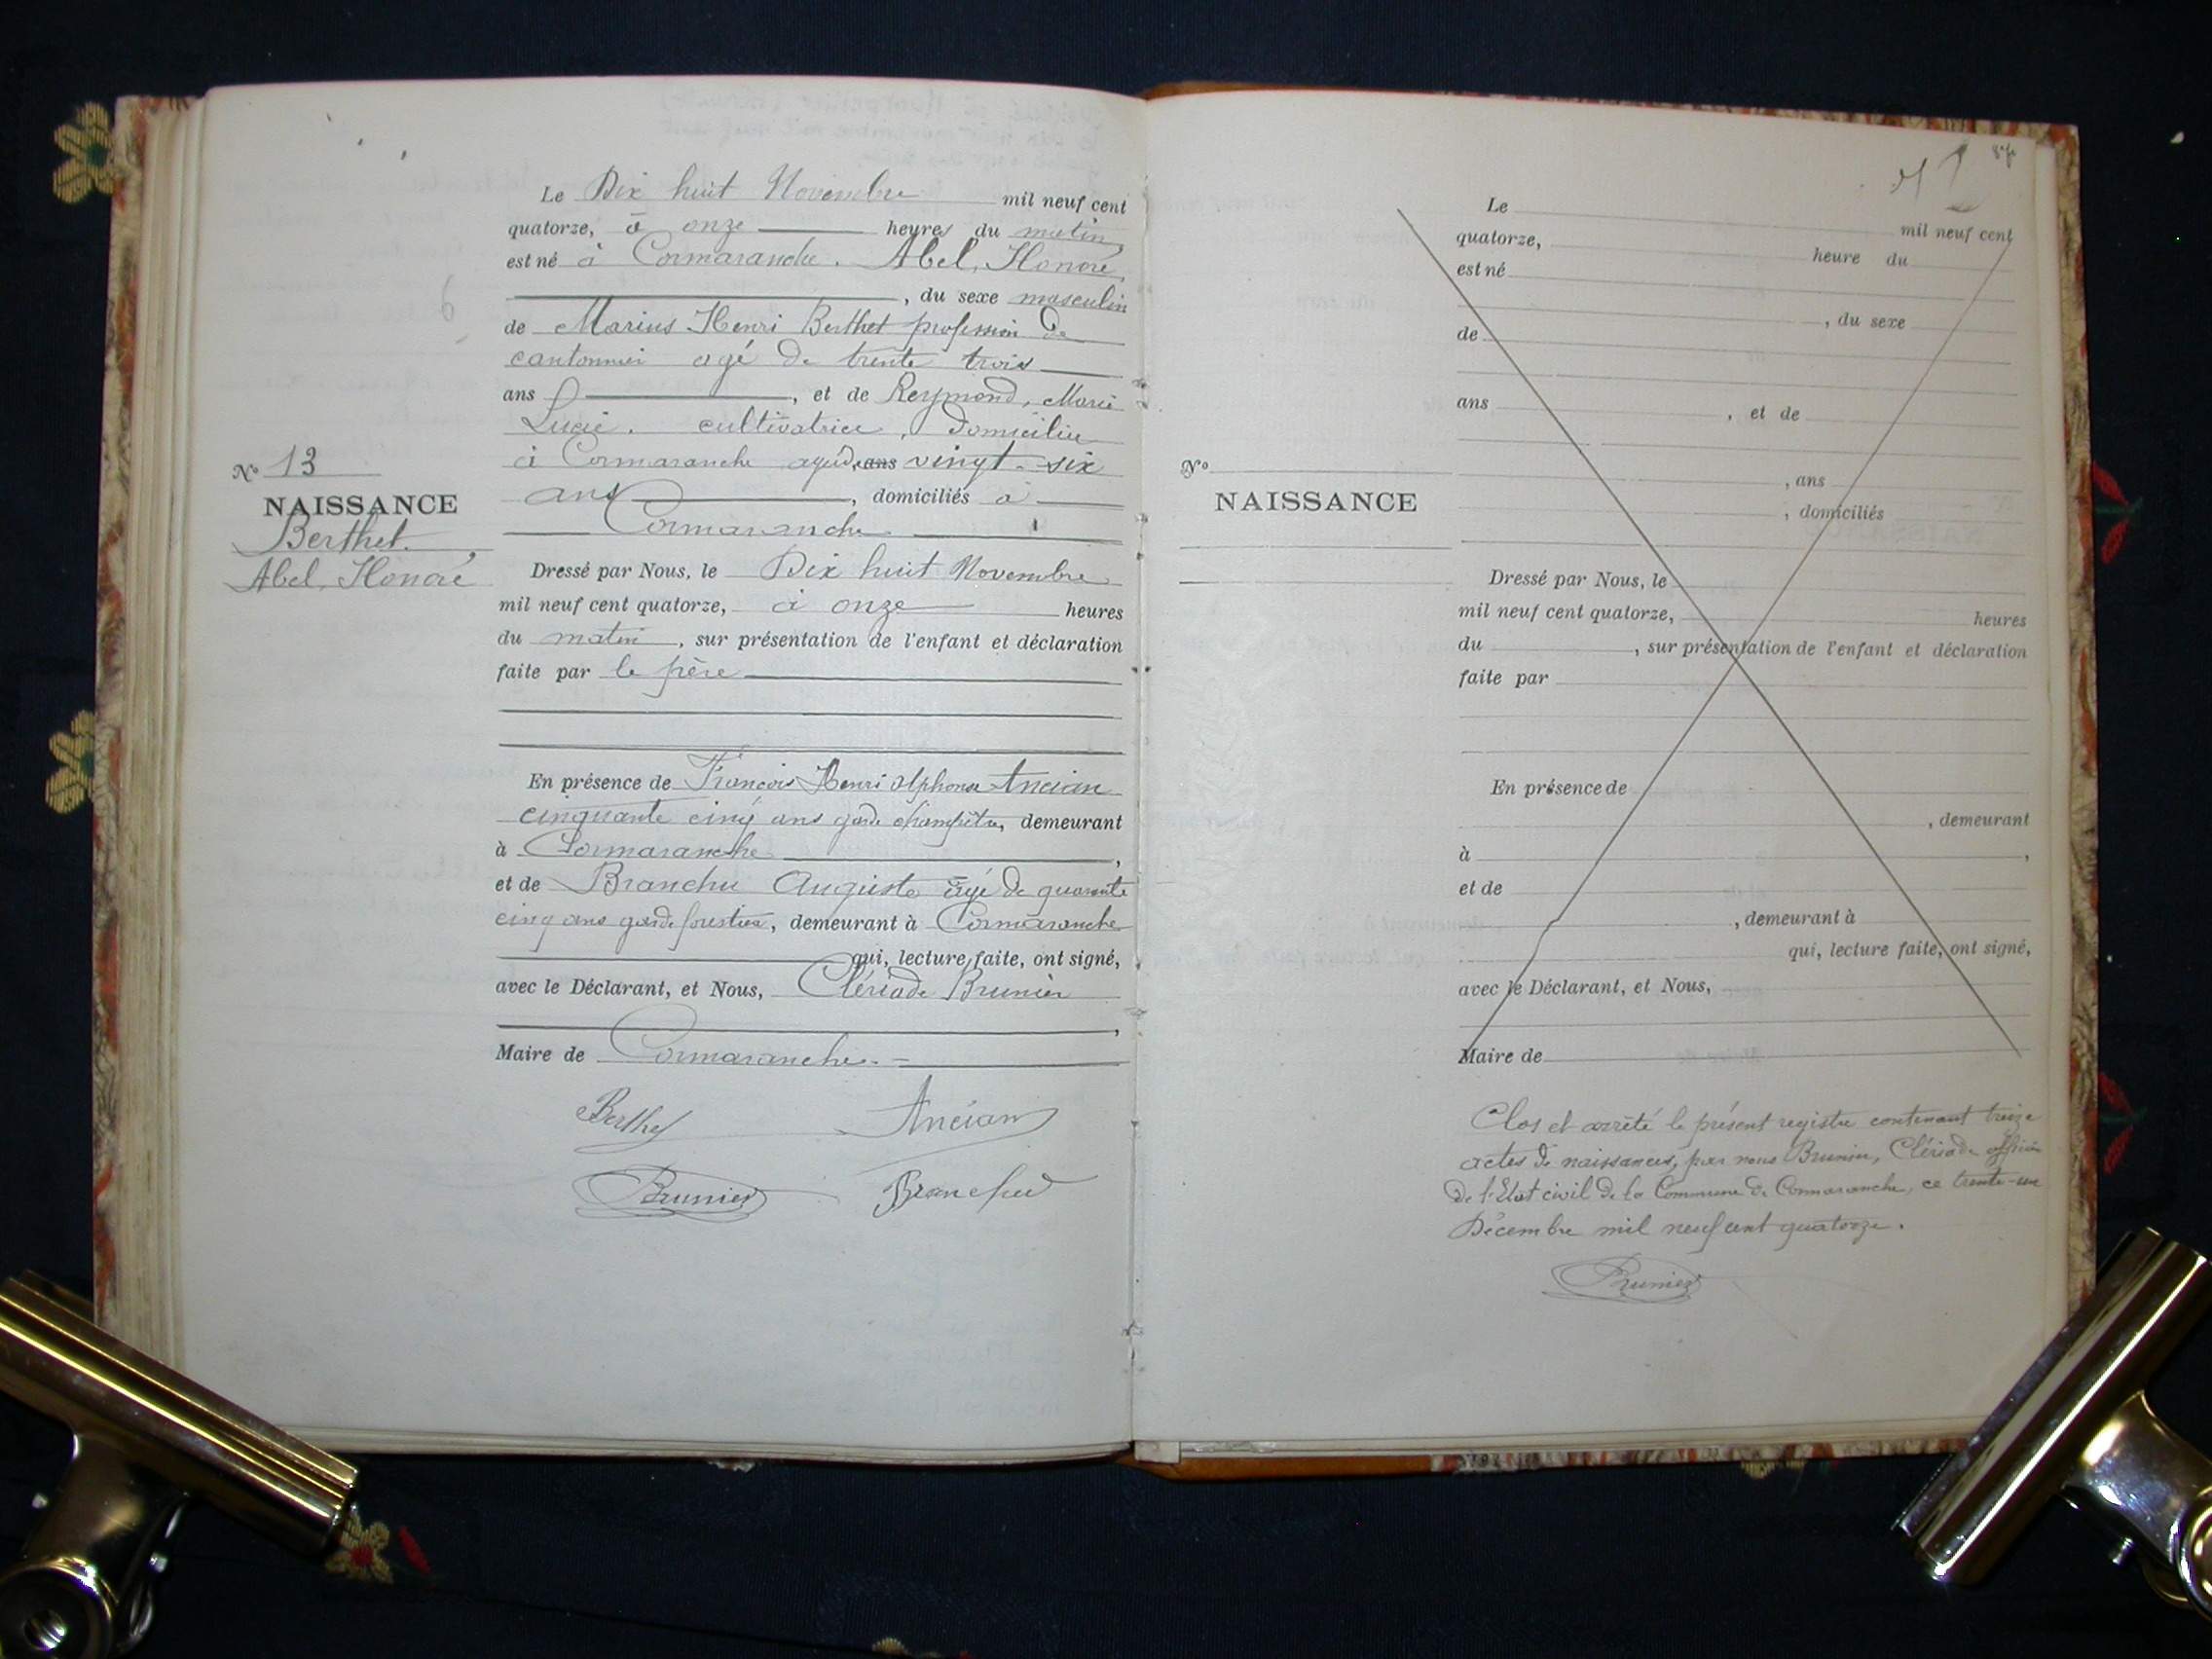 Le Dix huit Novembre mil neuf cent
quatorze, à onze heures du matin,
est né à Cormaranche. Abel, Honoré
, du sexe masculin
de Marius Henri Berthet profession de
cantonnier agé de trente trois
ans , et de Reymond, Marie
Lucie. cultivatrice, domiciliée
à Cormaranche agée ans vingt-six
ans , domiciliés à
Cormaranche
N° 13
NAISSANCE
Berthet,
Abel, Honoré
Dressé par Nous, le Dix huit Novembre
mil neuf cent quatorze, à onze heures
du matin, sur présentation de l'enfant et déclaration
faite par le père
En présence de François Henri Alphonse Ancian
cinquante cinq ans garde champêtre, demeurant
à Cormaranche ,
et de Branchu Auguste âgé de quarante
cinq ans garde forestier, demeurant à Cormaranche
qui, lecture faite, ont signé,
avec le Déclarant, et Nous, Clériade Brunier
,
Maire de Cormaranche.-
Berthet Ancian
Brunier Branchu
Le mil neuf cent
quatorze, heure du
est né
, du sexe
de
ans , et de
, ans
, domiciliés
N°
NAISSANCE
Dressé par Nous, le
mil neuf cent quatorze, heures
du , sur présentation de l'enfant et déclaration
faite par
En présence de
, demeurant
à ,
et de
, demeurant à
qui, lecture faite, ont signé,
avec le Déclarant, et Nous,
Maire de
Clos et arrêté le présent registre contenant treize
actes de naissances, par nous Brunier, Clériade officier
de l'Etat civil de la Commune de Cormaranche, ce trente-un
Décembre mil neuf cent quatorze.
Brunier